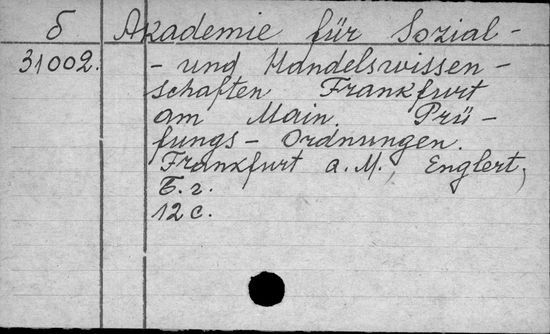 б Akademie für Sozial-
31002. - und Handelswissen-
schaften Frankfurt
am Main. Prü-
fungs-Ordnungen.
Frankfurt a. M., Englert,
Б.г.
12 с.